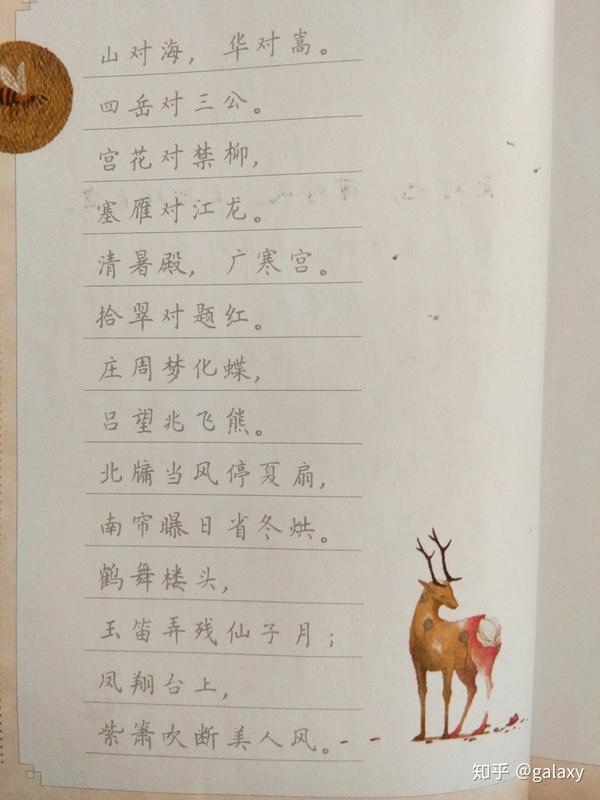 山对海，华对嵩。
四岳对三公。
宫花对禁柳，
塞雁对江龙。
清暑殿，广寒宫。
拾翠对题红。
庄周梦化蝶，
吕望兆飞熊。
北牖当风停夏扇，
南帘曝日省冬烘。
鹤舞楼头，
玉笛弄残仙子月；
凤翔台上，
紫箫吹断美人风。
知乎 @galaxy